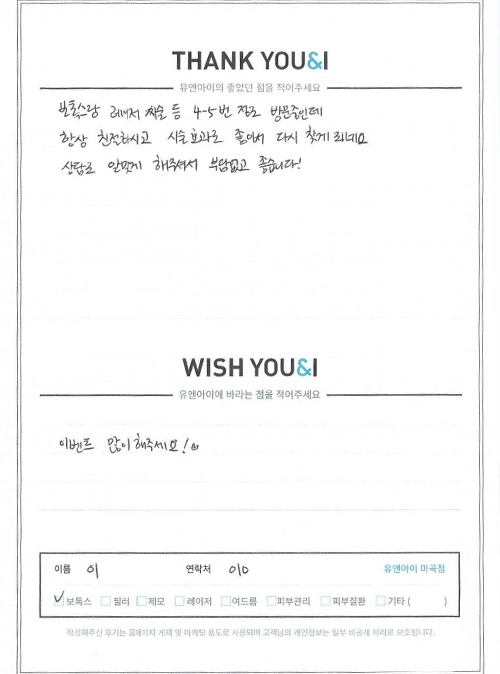 THANK YOU&I
유앤아이의 좋았던 점을 적어주세요
보톡스랑 레이저 시술 등 4-5번 정도 방문중인데
항상 친절하시고 시술효과도 좋아서 다시 찾게 되네요
상담도 알맞게 해주셔서 부담없고 좋습니다!
WISH YOU&I
유앤아이에 바라는 점을 적어주세요
이벤트 많이 해주세요!
이름 이 연락처 010 유앤아이 마곡점
보톡스 필러 제모 레이저 여드름 피부관리 피부질환 기타 ( )
작성해주신 후기는 홈페이지 게재 및 마케팅 용도로 사용되며 고객님의 개인정보는 일부 비공개 처리로 보호됩니다.